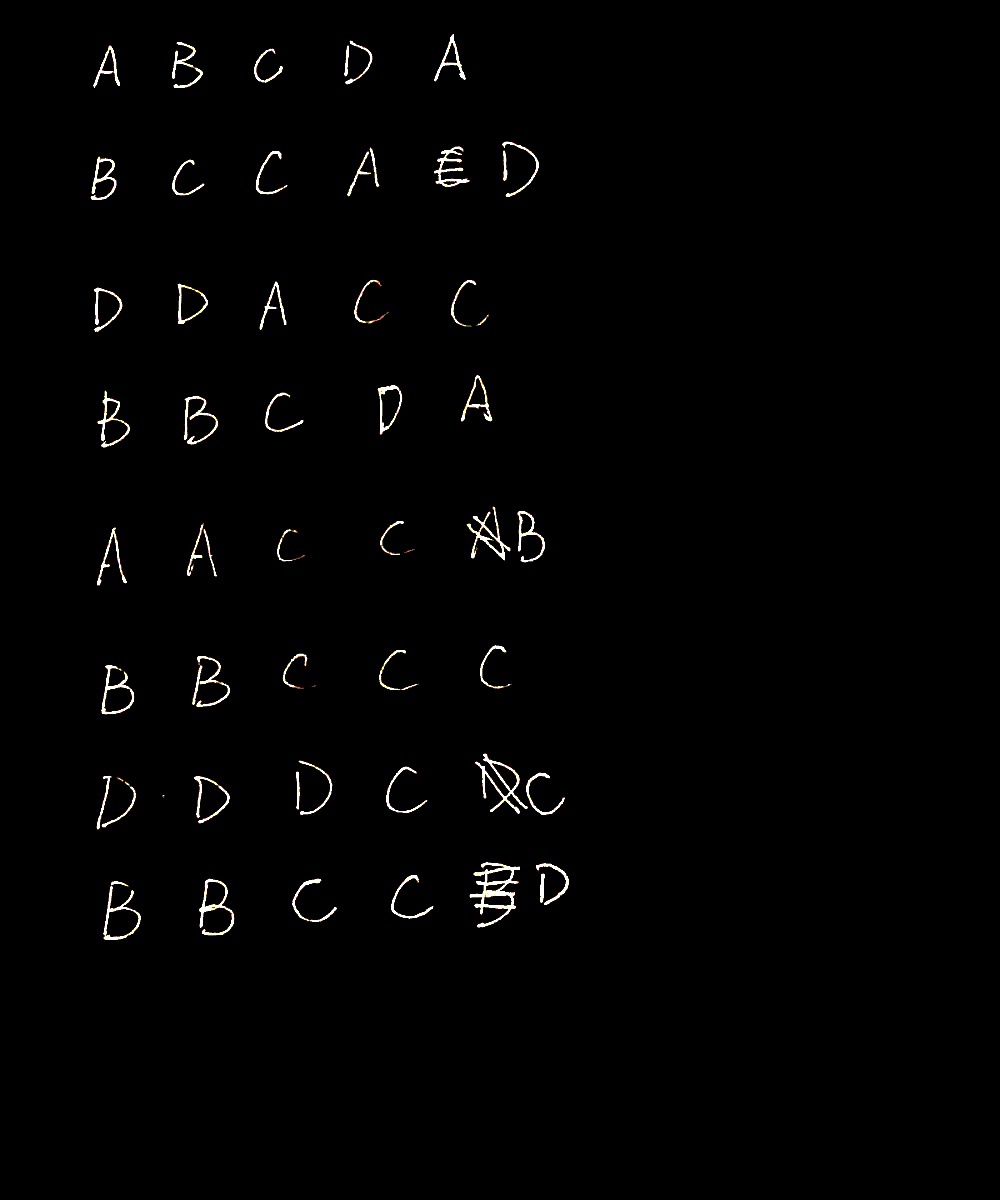 A B C D A
B C C A D
D D A C C
B B C D A
A A C C B
B B C C C
D D D C C
B B C C D